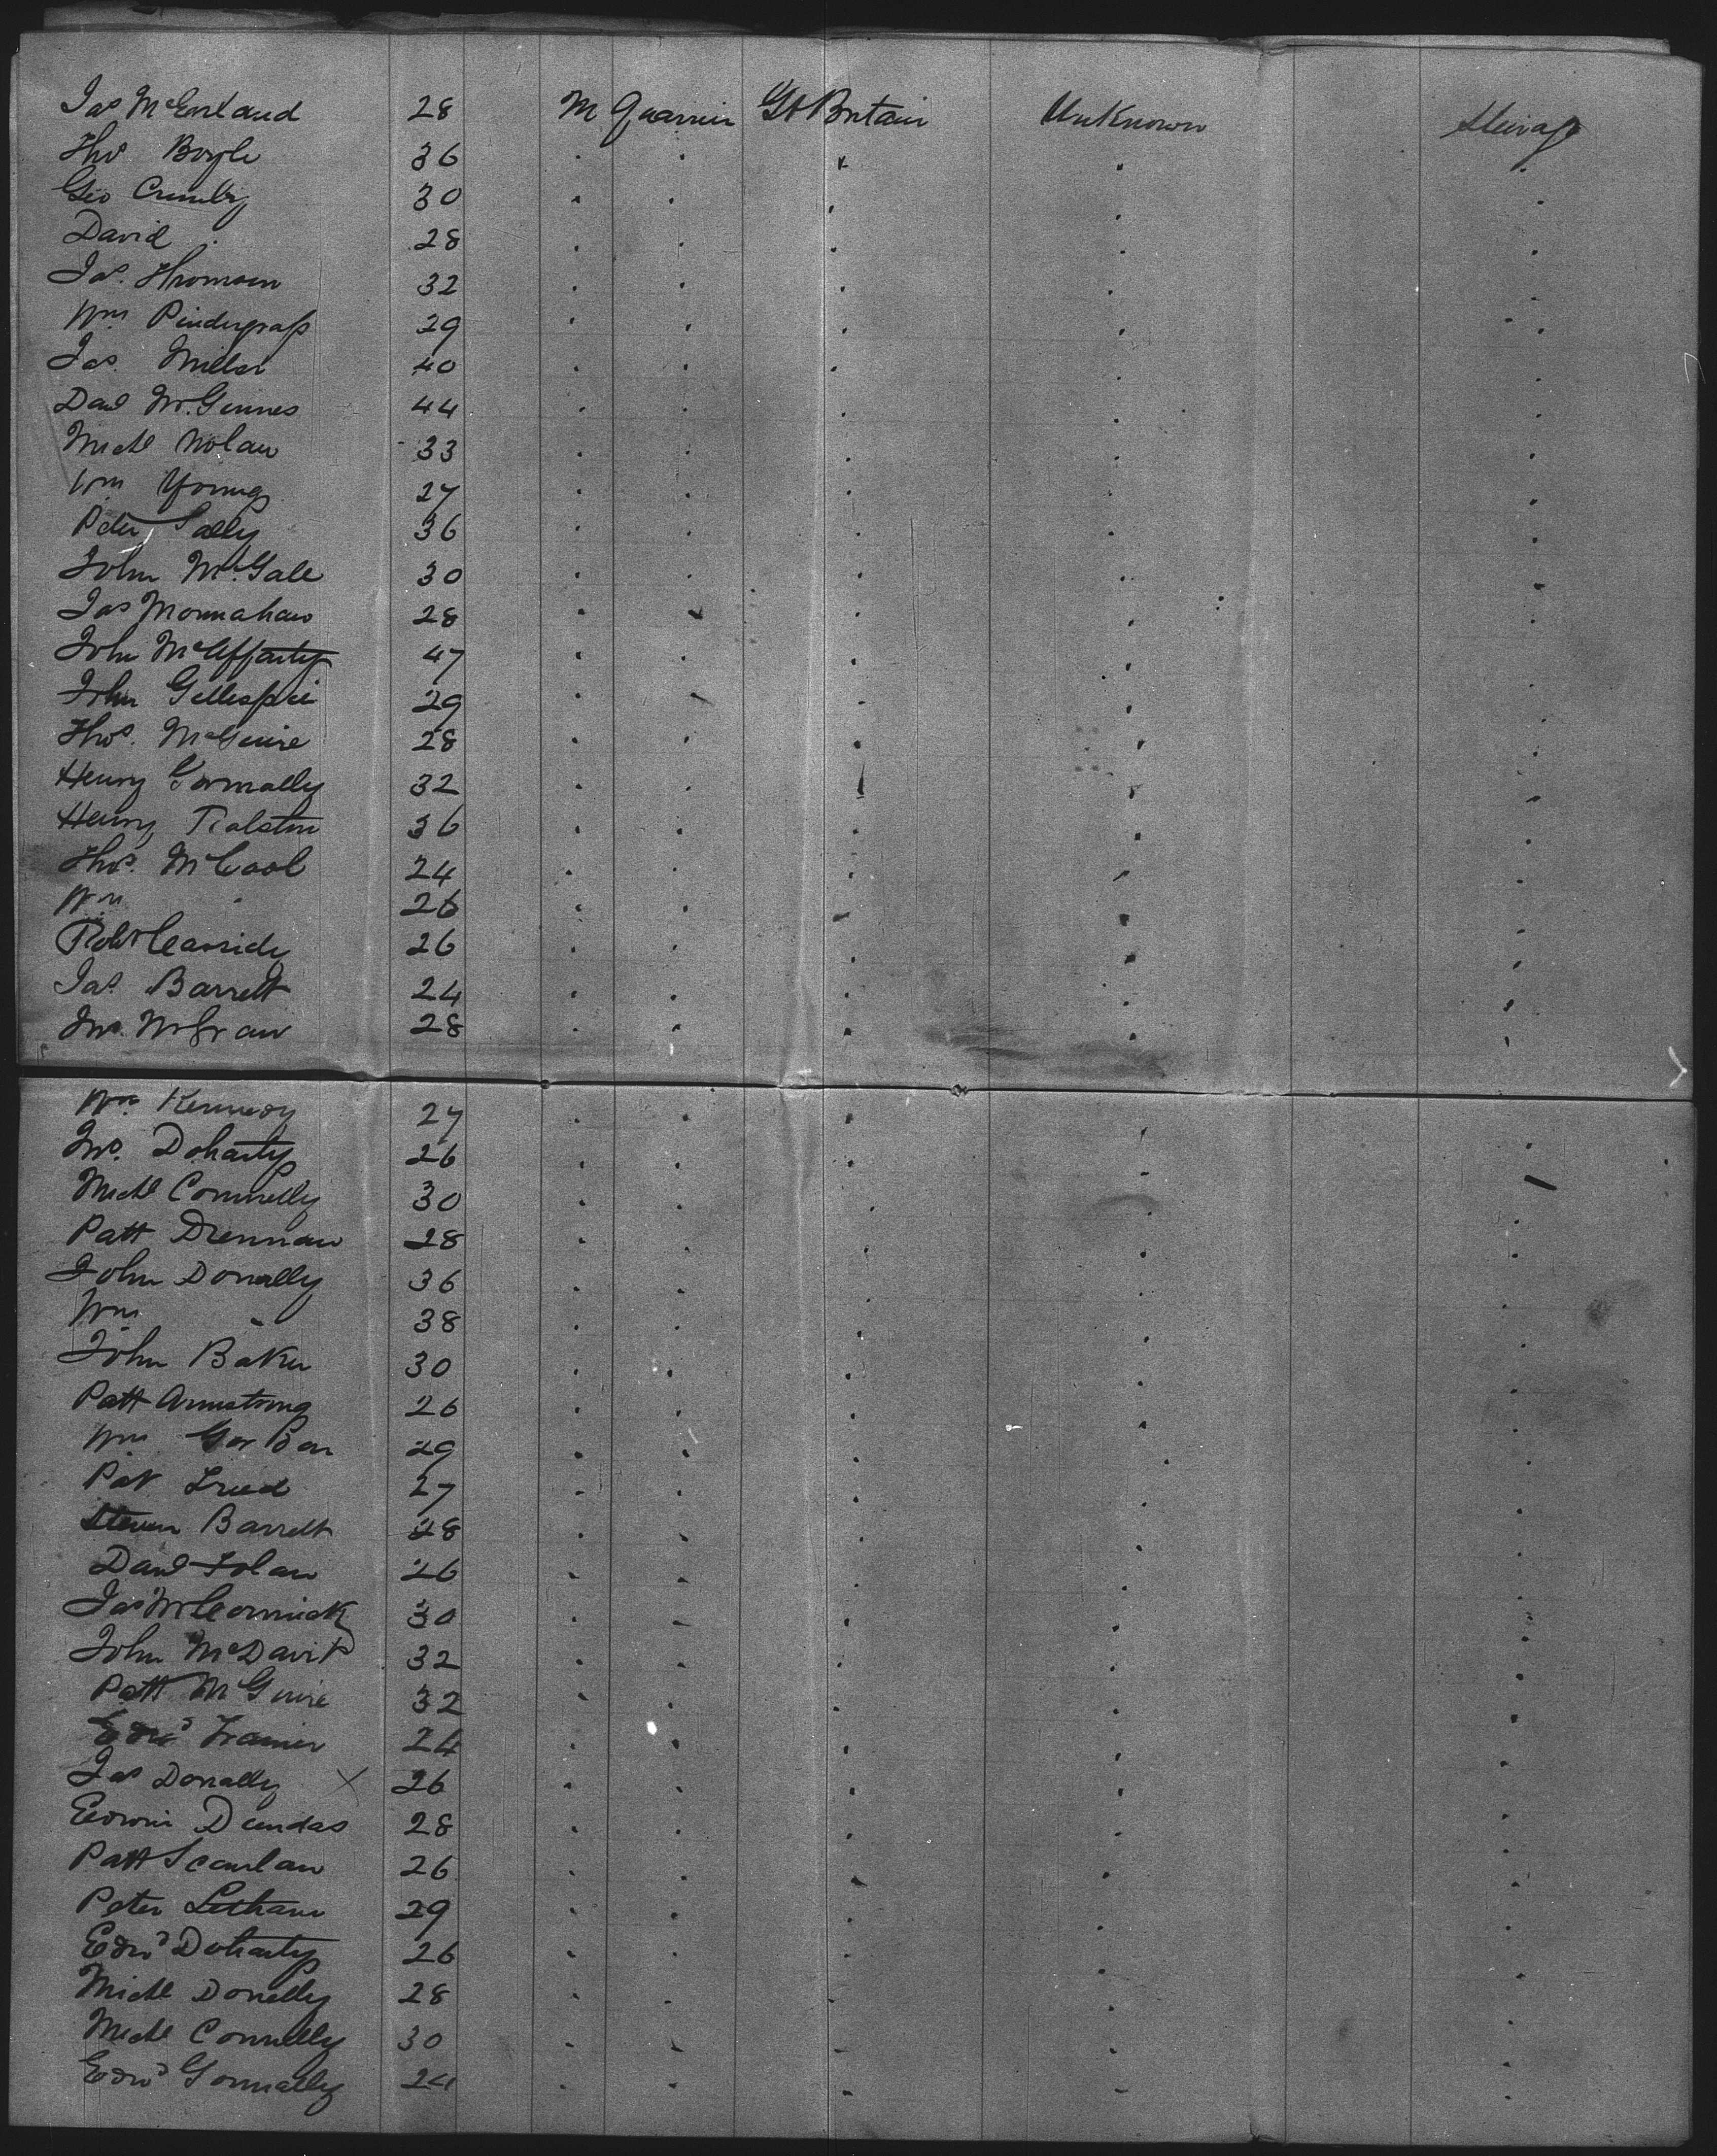 Jas McCorland 28 M Quarrier Gt Britain Unknown Steirage
Thos Boyle 36
Geo Crumley 30
David . 28
Jas. Thomson 32
Wm Pindergrass 29
Jas. Miller 40
Danl McGinnes 44
Michl Nolan 33
Wm Young 27
Peter Sally 36
John McGale 30
Jas Monnahan 28
John McAffarty 47
John Gillespie 29
Thos. McGuire 28
Henry Gormally 32
Henry Ralston 36
Thos. McCool 24
Wm " 26
Robt Cassidy 26
Jas. Barrett 24
Jno. McGraw 28
Wm Kennedy 27
Jno. Doharty 26
Michl Connelly 30
Patt Drennan 28
John Donally 36
Wm " 38
John Baker 30
Patt Armstrong 26
Wm 29
Pat 27
Steven Barrett 28
Danl Folan 26
Jas McCormick 30
John McDavit 32
Patt McGuire 32
Edwd Trainer 24
Jas Donally X 26
Edwin Dundas 28
Patt Scanlan 26
Peter Letham 29
Edwd Doharty 26
Michl Donelly 28
Michl Connelly 30
Edwd Gonnally 24